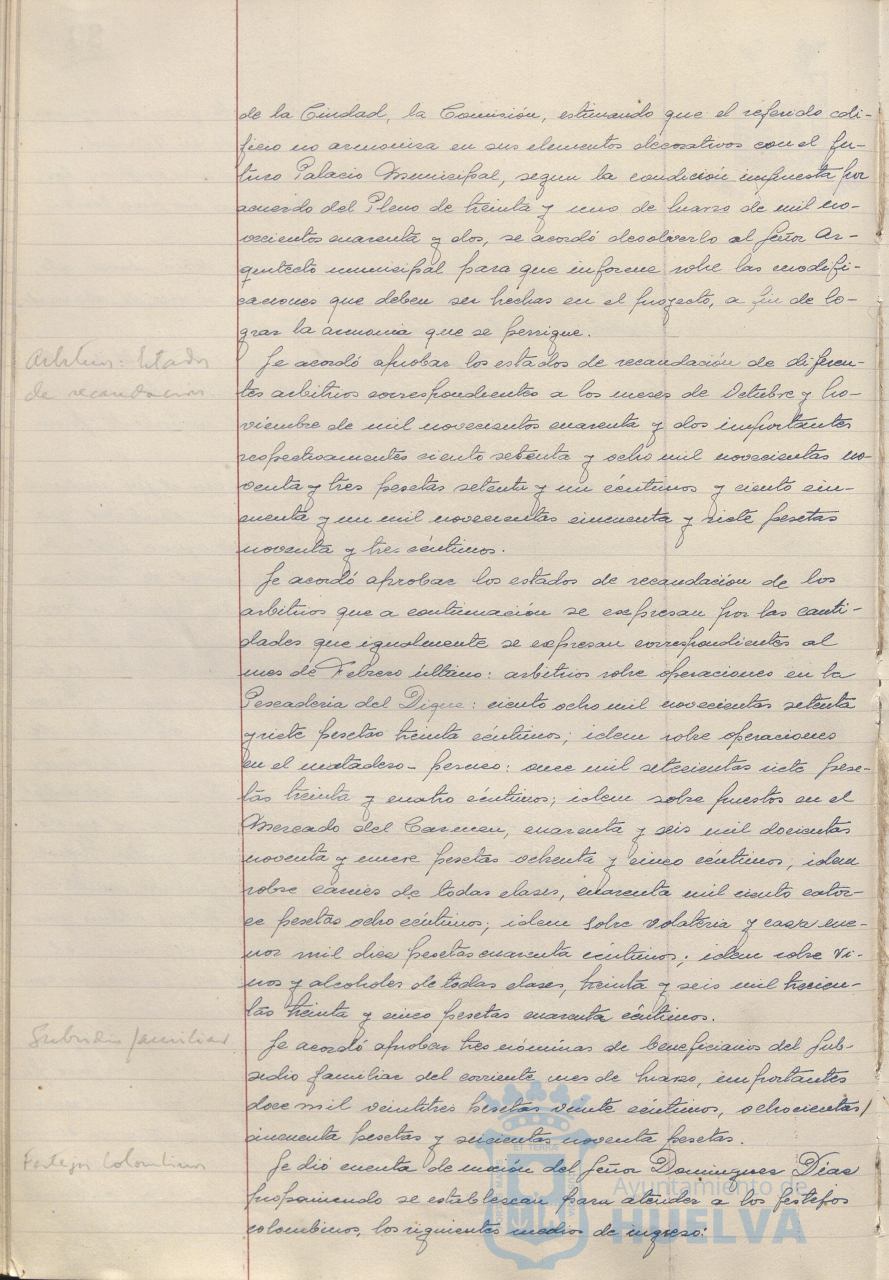 de la Ciudad, la Comisión, estimando que el referido edi-
ficio no armoniza en sus elementos decorativos con el fu-
turo Palacio Municipal, segun la condición impuesta por
acuerdo del Pleno de treinta y uno de Marzo de mil no-
vecientos cuarenta y dos, se acordó devolverlo al Señor Ar-
quitecto municipal para que informe sobre las modifi-
caciones que deben ser hechas en el proyecto, a fin de lo-
grar la armonia que se persigue.
Arbitrios. Estados
de recaudación
Se acordó aprobar los estados de recaudación de diferen-
tes arbitrios correspondientes a los meses de Octubre y No-
viembre de mil novecientos cuarenta y dos importantes
respectivamentes ciento setenta y ocho mil novecientas no-
venta y tres pesetas setenta y un céntimos y ciento cin-
cuenta y un mil novecientas cincuenta y siete pesetas
noventa y tres céntimos.
Se acordó aprobar los estados de recaudación de los
arbitrios que a continuación se expresan por las canti-
dades que igualmente se expresan correspondientes al
mes de Febrero último: arbitrios sobre operaciones en la
Pescaderia del Dique: ciento ocho mil novecientas setenta
y siete pesetas treinta céntimos; idem sobre operaciones
en el matadero- : once mil setecientas siete pese-
tas treinta y cuatro céntimos; idem sobre puestos en el
Mercado del Carmen, cuarenta y seis mil docientas
noventa y nueve pesetas ochenta y cinco céntimos; idem
sobre carnes de todas clases, cuarenta mil ciento cator-
ce pesetas ocho céntimos; idem sobre volateria y caza me-
nor mil diez pesetas cuarenta céntimos; idem sobre vi-
nos y alcoholes de todas clases, treinta y seis mil trecien-
tas treinta y cinco pesetas cuarenta céntimos.
Subsidio familiar
Se acordó aprobar tres nóminas de beneficiarios del Sub-
sidio familiar del corriente mes de Marzo, importantes
doce mil veintitres pesetas veinte céntimos, ochocientas
cincuenta pesetas y seiscientas noventa pesetas.
Festejos Colombinos
Se dió cuenta de moción del Señor Dominguez Diaz
proponiendo se establezcan para atender a los festejos
colombinos, los siguientes medios de ingreso:
Ayuntamiento de
HUELVA